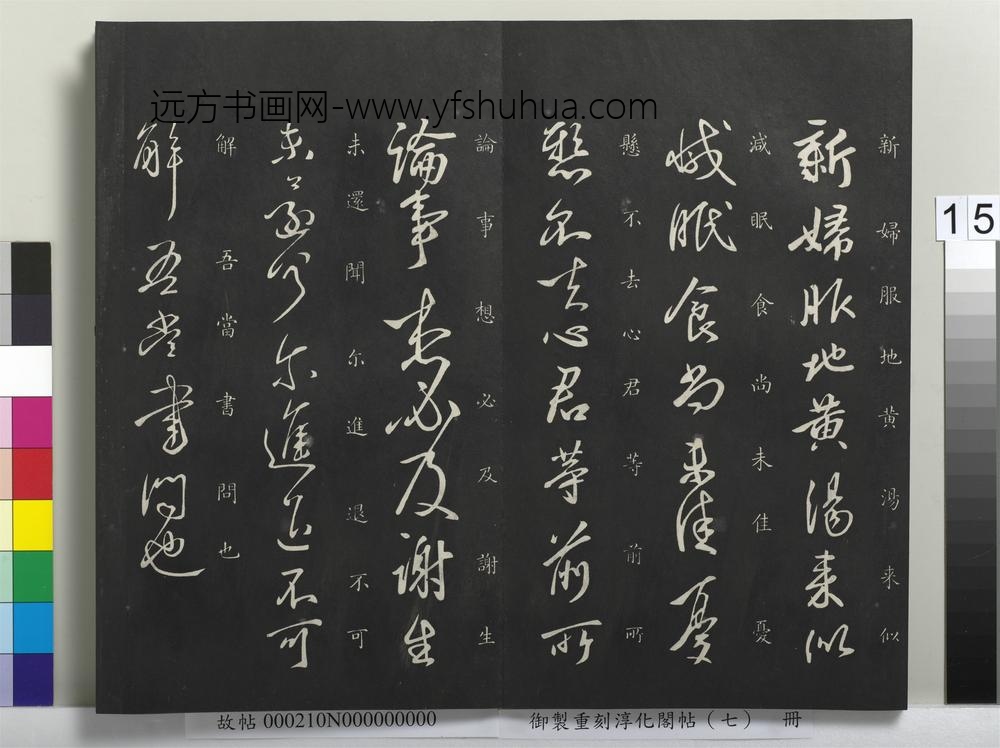 远方书画网-www.yfshuhua.com
新婦服地黄湯来似
新婦服地黄湯来似
減眠食尚未佳憂
減眠食尚未佳憂
懸不去心君等前所
懸不去心君等前所
論事想必及謝生
論事想必及謝生
未還聞尔進退不可
未還聞尔進退不可
解吾當書問也
解吾當書問也
15
故帖 000210N000000000
御製重刻淳化閣帖（七） 冊